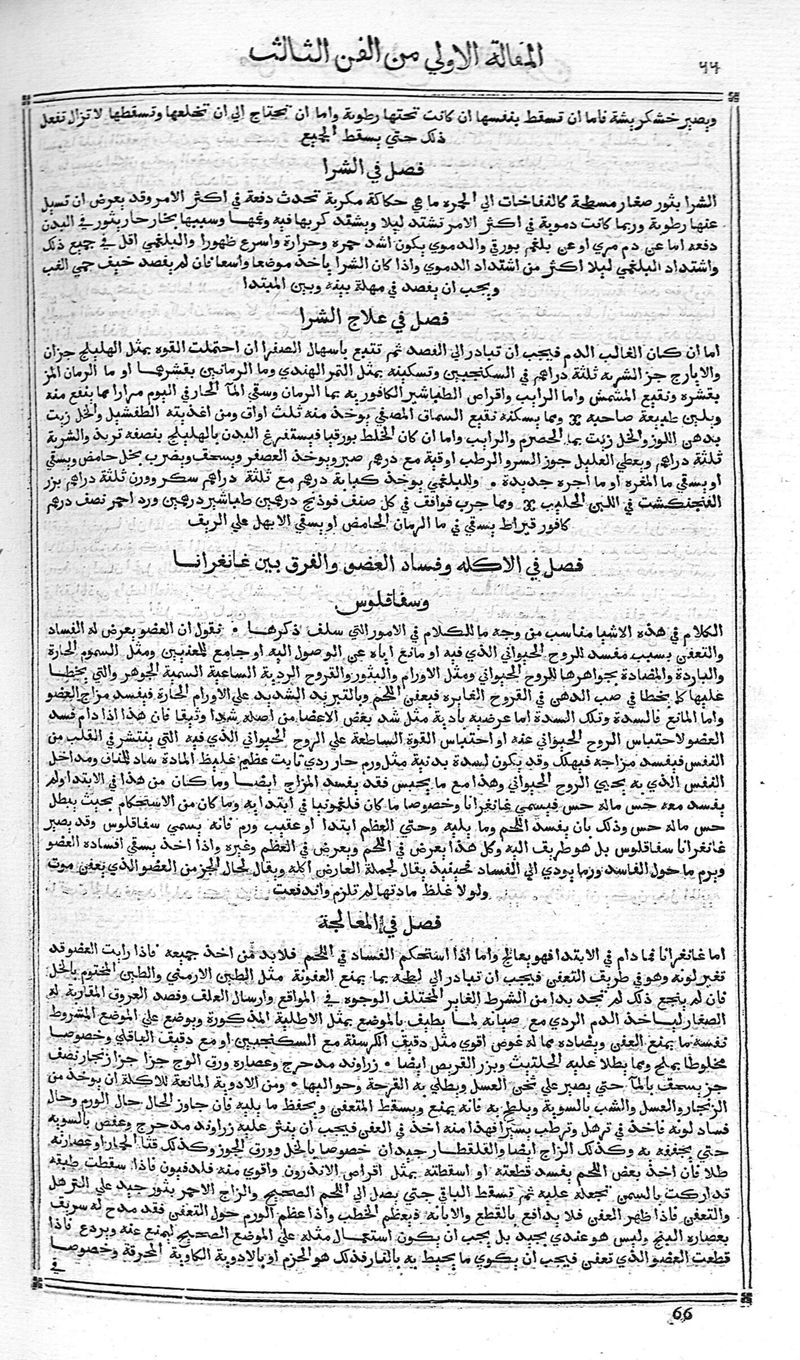 المقالة الاولي من الفن الثالث
٦٦
ويصير خشكريشة فاما ان تسقط بنفسها ان كانت تحتها رطوبة واما ان تحتاج الي ان تخلعها وتسقطها لا تزال تفعل
ذلك حتي يسقط الجميع
فصل في الشرا
الشرا بثور صغار مسطحة كالنفاخات الي الحمرة ما هي حكاكة مكربة تحدث دفعة في اكثر الامر وقد يعرض ان تسيل
عنها رطوبة وربما كانت دموية في اكثر الامر تشتد ليلا ويشتد كربها فيه وغمها وسببها بخار حار يثور في البدن
دفعه اما عن دم مري او عن بلغم بورقي والدموي يكون اشد حمره وحرارة واسرع ظهورا والبلغمي اقل في جميع ذلك
واشتداد البلغمي ليلا اكثر من اشتداد الدموي واذا كان الشرا ياخذ موضعا واسعا فان لم يفصد خيف حمي الغب
ويجب ان يفصد في مهلة بينه وبين المبتدا
فصل في علاج الشرا
اما ان كان الغالب الدم فيجب ان تبادر الي الفصد ثم تتبع باسهال الصفرا ان احتملت القوه بمثل الهليلج جزان
والايارج جز الشربه ثلثة دراهم في السكنجبين وتسكينه بمثل التمر الهندي وما الرمانين بقشرهما او ما الرمان المز
بقشره ونقيع المشمش وما الرايب واقراص الطباشير الكافوريه بما الرمان وسقي المآ الحار في اليوم مرارا مما ينفع منه
ويلين طبيعة صاحبه ※ ومما يسكنه نقيع السماق المصفي يوخذ منه ثلث اواق ومن اغذيته الطفشيل والخل زيت
بدهن اللوز والخل زيت بما الحصرم والرايب واما ان كان الخلط بورقيا فيستفرغ البدن بالهليلج بنصفه تربد والشربة
ثلثة دراهم ويعطي العليل جوز السرو الرطب اوقية مع درهم صبر ويوخذ العصفر ويسحف ويضرب بخل حامض ويسقي
او يسقي ما المغره او ما اجره جديدة ٠ وللبلغمي يوخذ كبابة درهم مع ثلثة دراهم سكر ووزن ثلثة دراهم بزر
الفنجنكشت في اللبن الحليب ※ ومما جرب فوافق في كل صنف فوذنج درهمين طباشير درهمين ورد احمر نصف درهم
كافور قيراط يسقي في ما الرمان الحامض او يسقي الابهل علي الريق
فصل في الاكله وفساد العضو والفرق بين غانغرانا
وسفاقلوس
الكلام في هذه الاشيا مناسب من وجه ما للكلام في الامور التي سلف ذكرها ٠ نقول ان العضو يعرض له الفساد
والتعفن بسبب مفسد للروح الحيواني الذي فيه او مانع اياه عن الوصول اليه او جامع للمعنيين ومثل السموم الحارة
والباردة والمضادة بجواهرها للروح الحيواني ومثل الاورام والبثور والقروح الردية الساعية السمية الجوهر والتي يخطا
عليها كما يخطا في صب الدهن في القروح الغايره فيعفن اللحم وبالتبريد الشديد علي الاورام الحارة فيفسد مزاج العضو
واما المانع فالسدة وتلك السدة اما عرضيه بادية مثل شد بعض الاعضا من اصله شدا وثيقا فان هذا اذا دام فسد
العضو لاحتباس الروح الحيواني عنه او احتباس القوة الساطعة علي الروح الحيواني الذي فيه التي ينتشر في القلب من
النفس فيفسد مزاجه فيهلك وقد يكون لسدة بدنية مثل ورم حار ردي ثابت عظيم غليظ المادة ساد للمنافس ومداخل
النفس الذي به يحيي الروح الحيواني وهذا مع ما يحبس فقد يفسد المزاج ايضا وما كان من هذا في الابتدا ولم
يفسد معه حس ماله حس فيسمي غانغرانا وخصوصا ما كان فلغمونيا في ابتدايه وما كان من الاستحكام بحيث يبطل
حس ماله حس وذلك بان يفسد اللحم وما يليه وحتي العظم ابتدا او عقيب ورم فانه يسمي سفاقلوس وقد يصير
غانغرانا سفاقلوس بل هو طريف اليه وكل هذا يعرض في اللحم ويعرض في العظم وغيره واذا اخذ يسعي افساده العضو
ويرم ما حول الفاسد ورما يودي الي الفساد فحينيذ يقال لجملة العارض اكله ويقال لحال الجز من العضو الذي يعفن موت
ولولا غلظ مادتها لم تلزم واندفعت
فصل في المعالجة
اما غانغرانا فما دام في الابتدا فهو يعالج واما اذا استحكم الفساد في اللحم فلا بد من اخذ جميعه فاذا رايت العضو قد
تغير لونه وهو في طريف التعفن فيجب ان تبادر الي لطخه بما يمنع العفونة مثل الطين الارمني والطين المختوم بالخل
فان لم ينجع ذلك لم تجد بدا من الشرط الغاير المختلف الوجوه في المواقع وارسال العلف وفصد العروق المقاربة له
الصغار ليا خذ الدم الردي مع صيانه لما يطيف بالموضع بمثل الاطلية المذكورة ويوضع علي الموضع المشروط
نفسه ما يمنع العفن ويضاده مما له غوص اقوي مثل دقيق الكرسنة مع السكنجبين او مع دقيق الباقلي وخصوصا
مخلوطا بملح ومما يطلا عليه الحلتيت وبزر القريص ايضا ٠ زراوند مدحرج وعصاره ورق الوج جزا جزا زنجار نصف
جز يسحف بالمآ حتي يصير علي ثخن العسل ويطلي به القرحة وحواليها ٠ ومن الادوية المانعة للاكلة ان يوخذ من
الزنجار والعسل والشب بالسوية ويلطخ به فانه يمنع ويسقط المتعفن ويحفظ ما يليه فان جاوز الحال حال الورم وحال
فساد لونه فاخذ في ترهل وترطب يسيرا فهذا منه اخذ في العفن فيجب ان ينثر عليه زراوند مدحرج وعفص بالسويه
حتي يجففه به وكذلك الزاج ايضا والقلقطار جيدان خصوصا بالخل وورق الجوز وكذلك قثا الحمار او عصارته
طلا فان اخذ بعض اللحم يفسد قطعته او اسقطته بمثل اقراص الاندرون واقوي منه فلدفيون فاذا سقطت طبقه
تداركت بالسمن تجعله عليه ثم تسقط الباقي حتي يصل الي اللحم الصحيح والزاج الاحمر بثور جيد علي الترهل
والتعفن فاذا ظهر العفن فلا يدافع بالقطع والابانه فيعظم الخطب واذا عظم الورم حول التعفن فقد مدح له سريف
بعصاره البنج وليس هو عندي بجيد بل يجب ان يكون استعمال مثله علي الموضع الصحيح ليمنع عنه ويردع فاذا
قطعت العضو الذي تعفن فيجب ان يكوي ما يحيط به بالنار فذلك هو الحزم او بالادوية الكاوية المحرقة وخصوصا
في
66